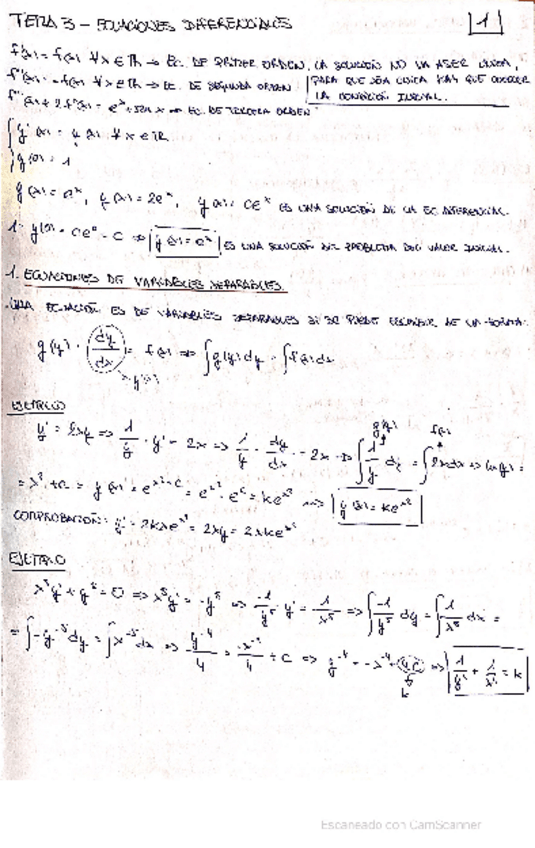 TEMA 3 - ECUACIONES DIFERENCIALES 1
f'(x) = f(x) ∀x ∈ ℝ → EC. DE PRIMER ORDEN. LA SOLUCIÓN NO VA A SER ÚNICA,
f''(x) = -f(x) ∀x ∈ ℝ → EC. DE SEGUNDA ORDEN PARA QUE SEA ÚNICA HAY QUE CONOCER
LA CONDICIÓN INICIAL.
f'''(x) + 2f''(x) = e^x + sen x → EC. DE TERCERA ORDEN
{ y'(x) = y(x) ∀x ∈ ℝ
y(0) = 1
y(x) = e^x, y(x) = 2e^x, y(x) = Ce^x ES UNA SOLUCIÓN DE LA EC. DIFERENCIAL.
1 = y(0) = Ce^0 = C ⇒ y(x) = e^x ES UNA SOLUCIÓN DEL PROBLEMA DEL VALOR INICIAL.
1. ECUACIONES DE VARIABLES SEPARABLES.
UNA ECUACIÓN ES DE VARIABLES SEPARABLES SI SE PUEDE ESCRIBIR DE LA FORMA:
g(y) · dy/dx = f(x) ⇒ ∫g(y)dy = ∫f(x)dx
y'(x)
EJEMPLO
g(y) f(x)
y' = 2xy ⇒ 1/y · y' = 2x ⇒ 1/y · dy/dx = 2x ⇒ ∫ 1/y dy = ∫2x dx ⇒ ln(y) =
= x² + C = y(x) = e^(x²+C) = e^(x²) · e^C = Ke^(x²) ⇒ y(x) = Ke^(x²)
COMPROBACIÓN: y' = 2Kxe^(x²) = 2xy = 2xKe^(x²)
EJEMPLO
x⁵y' + y⁵ = 0 ⇒ x⁵y' = -y⁵ ⇒ -1/y⁵ · y' = 1/x⁵ ⇒ ∫ -1/y⁵ dy = ∫ 1/x⁵ dx =
= ∫-y⁻⁵dy = ∫x⁻⁵dx ⇒ y⁻⁴/4 = -x⁻⁴/4 + C ⇒ y⁻⁴ = -x⁻⁴ + 4C ⇒ 1/y⁴ + 1/x⁴ = K
K
Escaneado con CamScanner